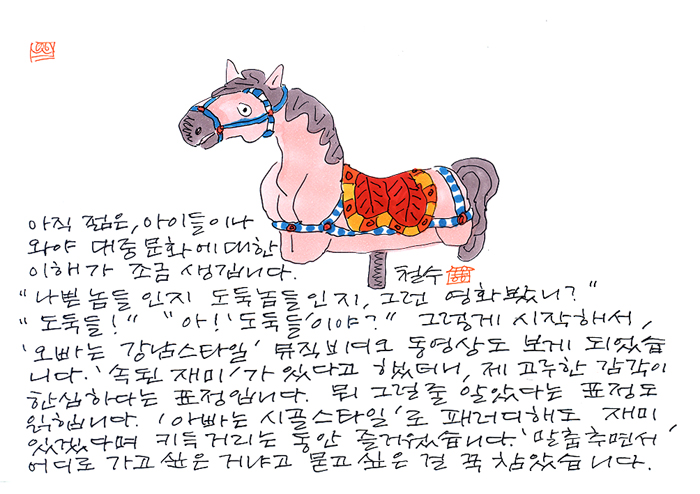 아직 젊은, 아이들이나
와야 대중문화에 대한
이해가 조금 생깁니다.
"나쁜놈들 인지 도둑놈들 인지, 그런 영화봤니?"
"도둑들!" "아! '도둑들'이야?" 그렇게 시작해서,
'오빠는 강남스타일' 뮤직비디오 동영상도 보게 되었습
니다. '속된 재미'가 있다고 했더니, 제 고루한 감각이
한심하다는 표정입니다. 뭐 그럴줄 알았다는 표정도
읽힙니다. '아빠는 시골스타일'로 패러디해도 재미
있겠다며 키득거리는 동안 즐거웠습니다. '말춤추면서'
어디로 가고 싶은 거냐고 묻고 싶은 걸 꾹 참았습니다.
철수